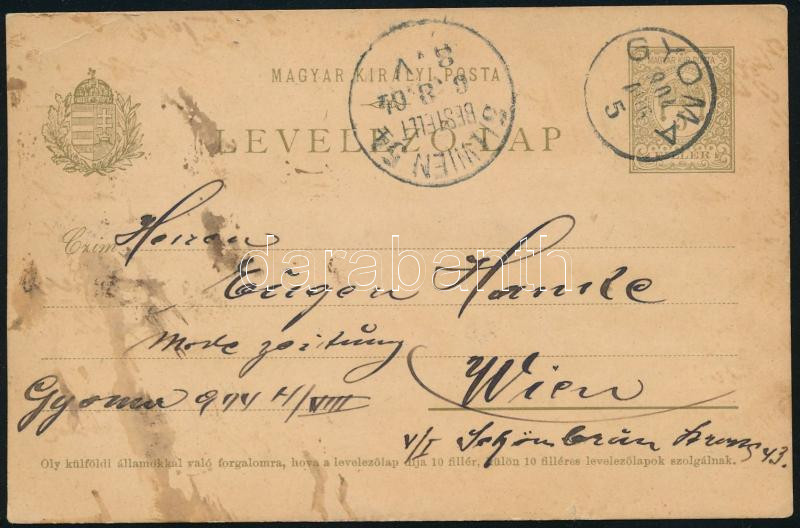 MAGYAR KIRÁLYI POSTA
LEVELEZŐ-LAP
GYOMA
5
WIEN
BESTELLT
8.V
6.8.01
MAGYAR KIR. POSTA
FILLÉR
Czim
Herren
Eugen Hanke
Mode zeitung
Wien
Gyoma 914 4/VIII
V/I Schömbrün 43.
Oly külföldi államokkal való forgalomra, hova a levelezőlap díja 10 fillér, külön 10 filléres levelezőlapok szolgálnak.
darabanth